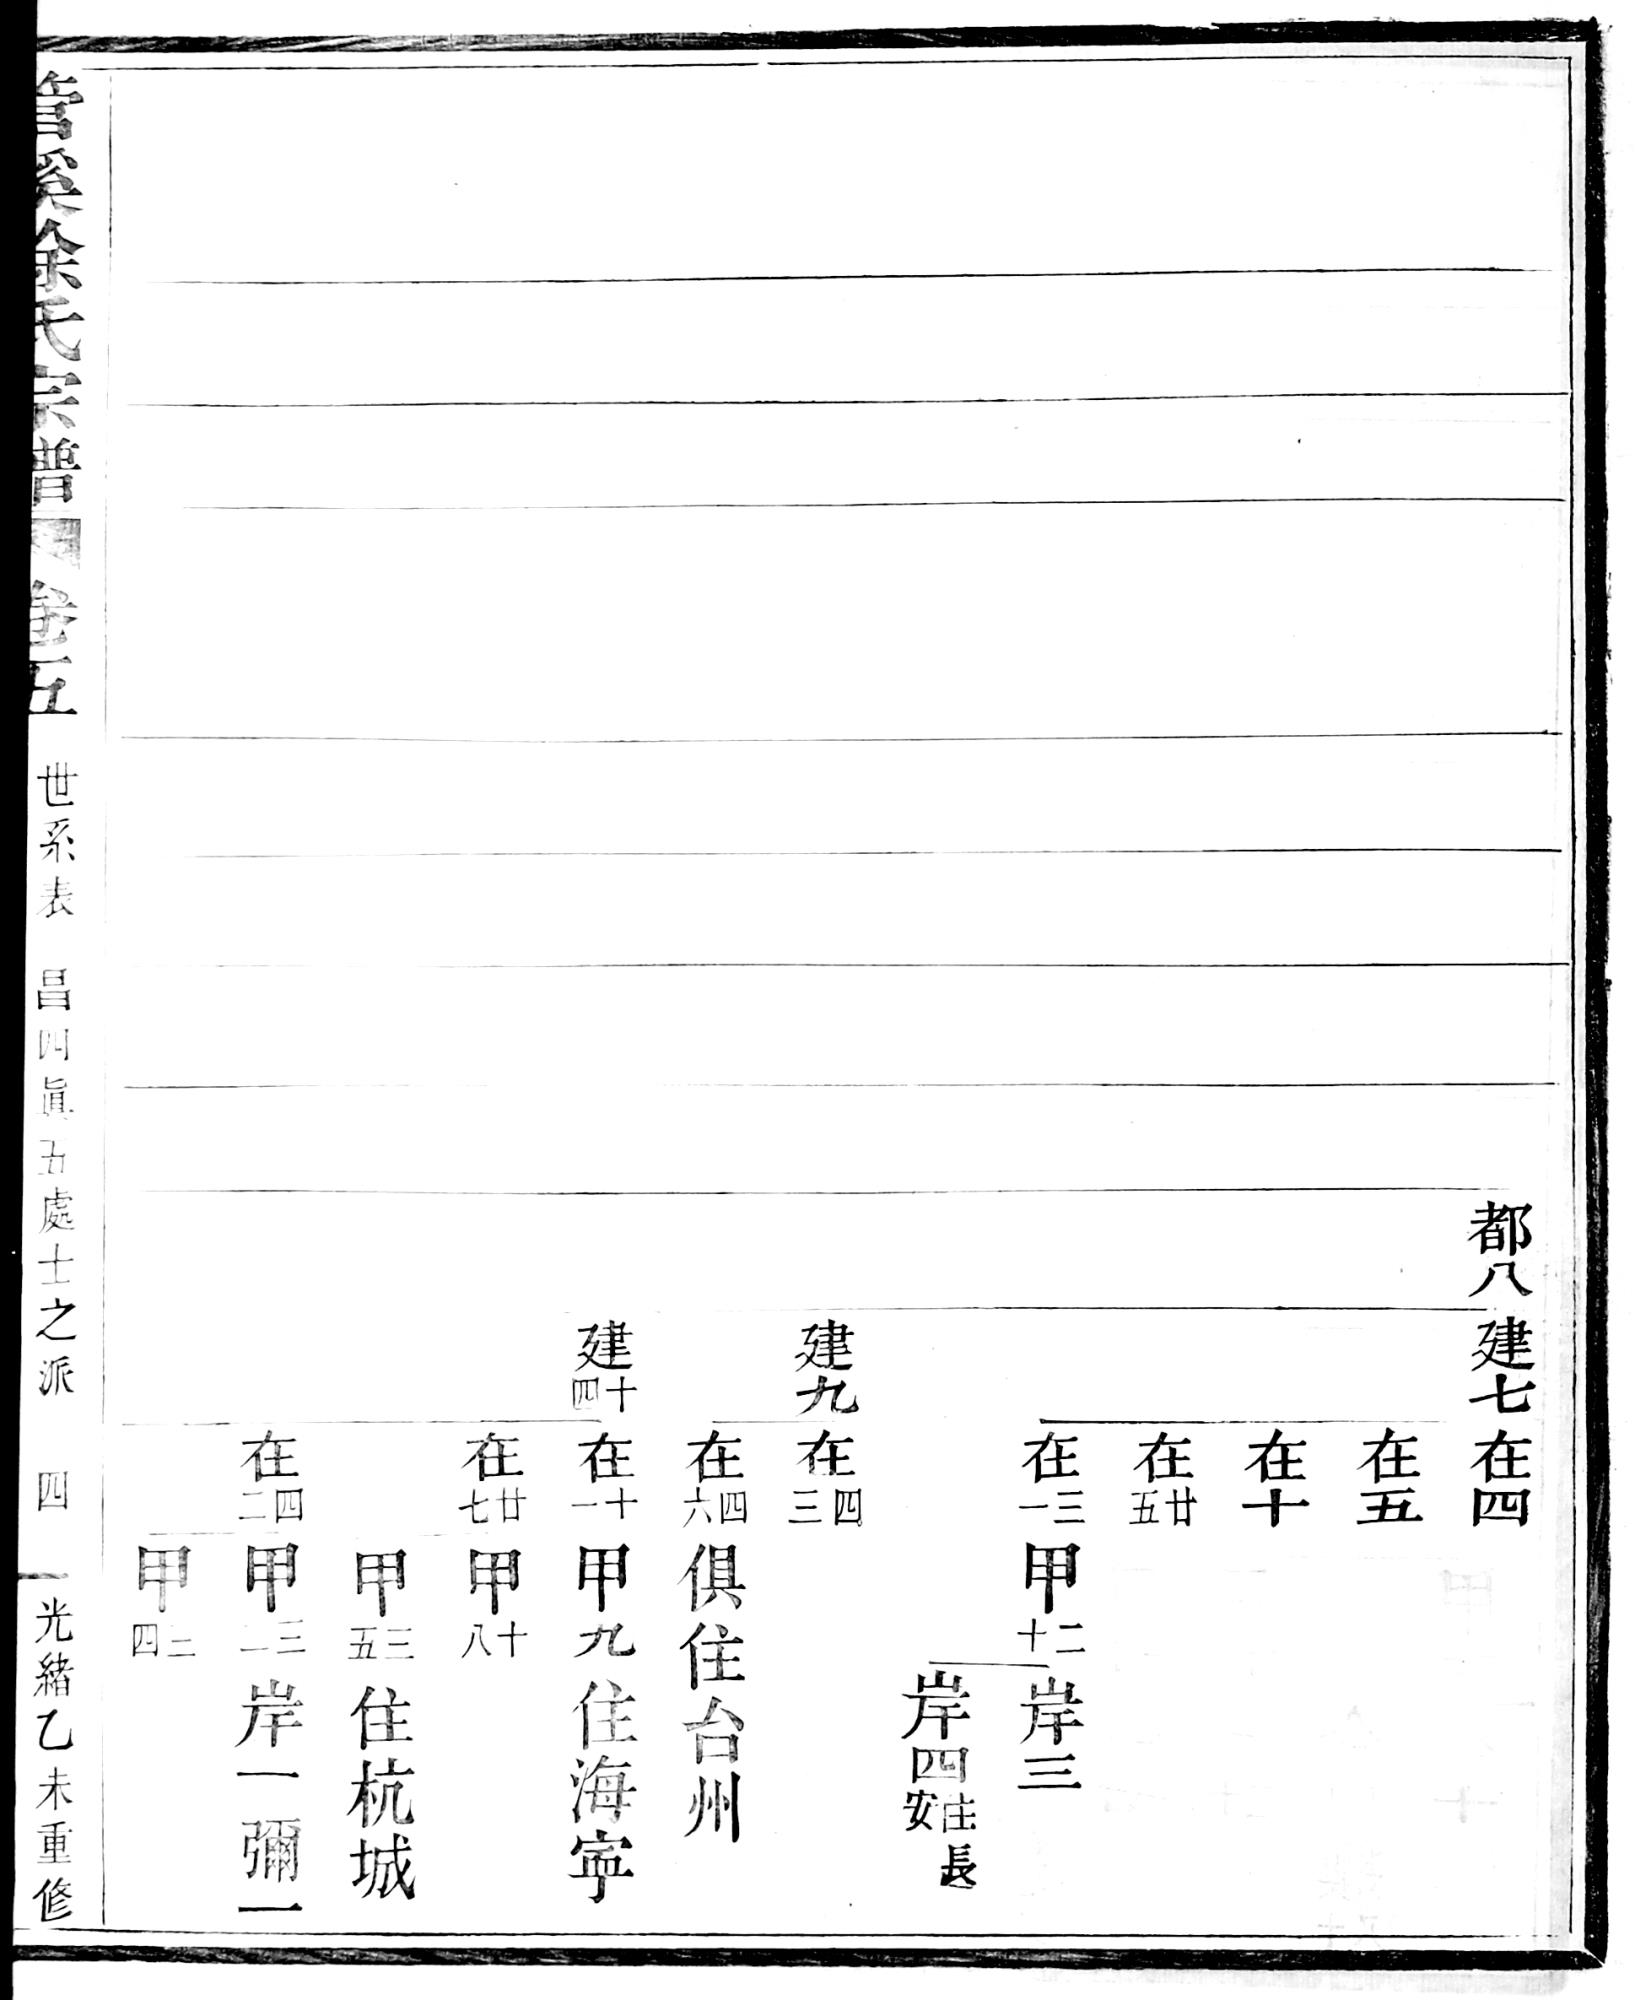 都八 建七 在四
在五
在十
在廿五
在三一 甲二十 岸三
岸四 住長安
建九 在四三
在四六 俱住台州
建十四 在十一 甲九 住海寧
在廿七 甲十八
甲三五 住杭城
在四二 甲三二 岸一 彌一
甲三四
管溪徐氏宗譜 卷五 世系表 昌四眞五處士之派 四 光緒乙未重修